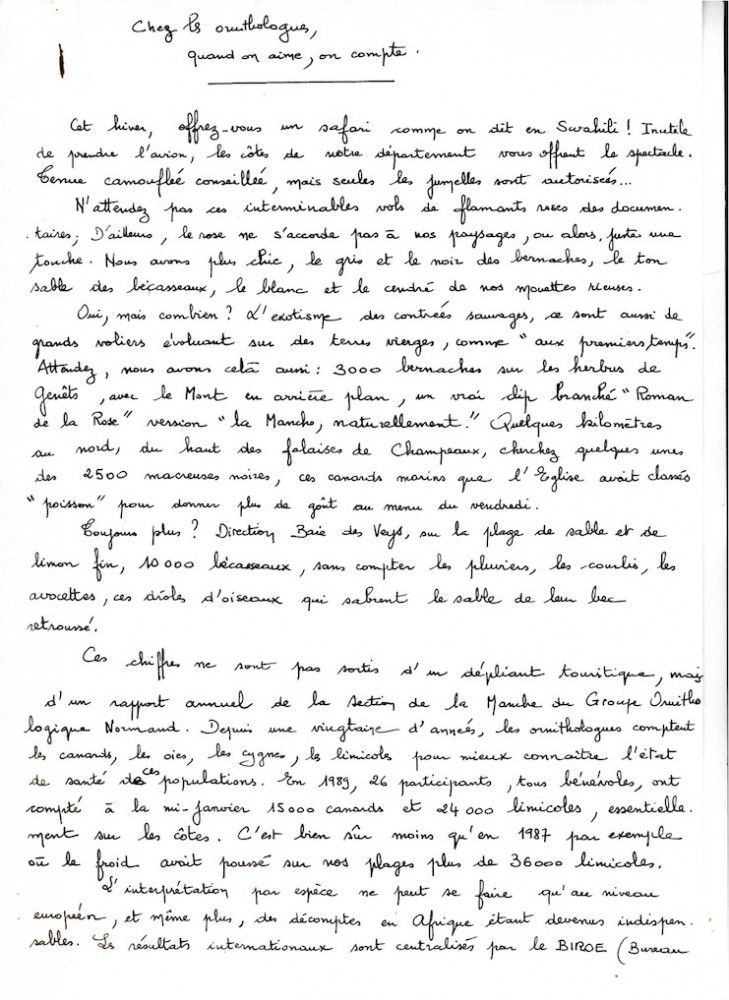 Chez les ornithologues,
quand on aime, on compte.
Cet hiver, offrez-vous un safari comme on dit en Swahili ! Inutile
de prendre l'avion, les côtes de notre département vous offrent le spectacle.
Tenue camouflée conseillée, mais seules les jumelles sont autorisées...
N'attendez pas ces interminables vols de flamants roses des documen.
.taires; D'ailleurs, le rose ne s'accorde pas à nos paysages, ou alors, juste une
touche. Nous avons plus chic, le gris et le noir des bernaches, le ton
sable des bécasseaux, le blanc et le cendré de nos mouettes rieuses.
Oui, mais combien ? L'exotisme des contrées sauvages, ce sont aussi de
grands voliers évoluant sur des terres vierges, comme "aux premiers temps".
Attendez, nous avons celà aussi : 3000 bernaches sur les herbus de
Genêts, avec le Mont en arrière plan, un vrai clip branché "Roman
de la Rose" version "la Manche, naturellement." Quelques kilomètres
au nord, du haut des falaises de Champeaux, cherchez quelques unes
des 2500 macreuses noires, ces canards marins que l'Eglise avait classés
"poisson" pour donner plus de goût au menu du vendredi.
Toujours plus ? Direction Baie des Veys, sur la plage de sable et de
limon fin, 10 000 bécasseaux, sans compter les pluviers, les courlis, les
avocettes, ces drôles d'oiseaux qui sabrent le sable de leur bec
retroussé.
Ces chiffres ne sont pas sortis d'un dépliant touristique, mais
d'un rapport annuel de la Section de la Manche du Groupe Ornitho
logique Normand. Depuis une vingtaine d'années, les ornithologues comptent
les canards, les oies, les cygnes, les limicoles pour mieux connaître l'état
de santé de ces populations. En 1989, 26 participants, tous bénévoles, ont
compté à la mi-janvier 15000 canards et 24 000 limicoles, essentielle.
ment sur les côtes. C'est bien sûr moins qu'en 1987 par exemple
où le froid avait poussé sur nos plages plus de 36000 limicoles.
L'interprétation par espèce ne peut se faire qu'au niveau
européen, et même plus, des décomptes en Afrique étant devenus indispen.
sables. Les résultats internationaux sont centralisés par le BIROE (Bureau